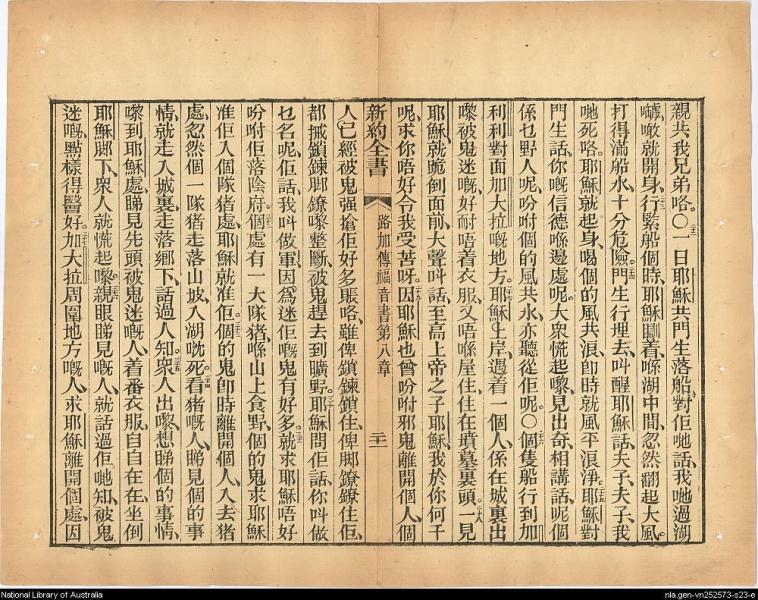 親共我兄弟咯。〇一日耶穌共門生落船、對佢哋話、我哋過湖
嚹、噉就開身、行緊船個時、耶穌瞓着喺湖中間、忽然翻起大風、
打得滿船水、十分危險、門生行埋去、叫醒耶穌話、夫子夫子、我
哋死咯、耶穌就起身、喝個的風共浪、卽時就風平浪淨、耶穌對
門生話、你嘅信德喺邊處呢、大衆慌起嚟、見出奇、相講話、呢個
係乜野人呢、吩咐個的風共水、亦聽從佢呢、〇個隻船行到加
利利對面加大拉嘅地方、耶穌上岸、遇着一個人、係在城裏出
嚟、被鬼迷嘅、好耐唔着衣服、又唔喺屋住、住在墳墓裏頭、一見
耶穌、就跪倒面前、大聲叫話、至高上帝之子耶穌、我於你何干
呢、求你唔好令我受苦呀、因耶穌也曾吩咐邪鬼離開個人、個
新約全書 路加傳福音書第八章 二十一
人已經被鬼强搶佢好多賬咯、雖俾鎖鍊鎖住、俾脚鐐鐐住佢、
都搣鎖鍊脚鐐嚟整斷、被鬼趕去到曠野、耶穌問佢話、你叫做
乜名呢、佢話、我叫做軍、因爲迷佢嘅鬼有好多、就求耶穌唔好
吩咐佢落陰府、個處有一大隊猪、喺山上食野、個的鬼求耶穌
准佢入個隊猪處、耶穌就准佢、個的鬼卽時離開個人、入去猪
處、忽然個一隊猪走落山坡、入湖吮死、看猪嘅人、睇見個的事
情、就走入城裏、走落鄉下、話過人知、衆人出嚟、想睇個的事情、
嚟到耶穌處、睇見先頭被鬼迷嘅人、着番衣服、自自在在、坐倒
耶穌脚下、衆人就慌起嚟、親眼睇見嘅人、就話過佢哋知、被鬼
迷嘅、點樣得醫好、加大拉周圍地方嘅人、求耶穌離開個處、因
National Library of Australia
nla.gen-vn252573-s23-e